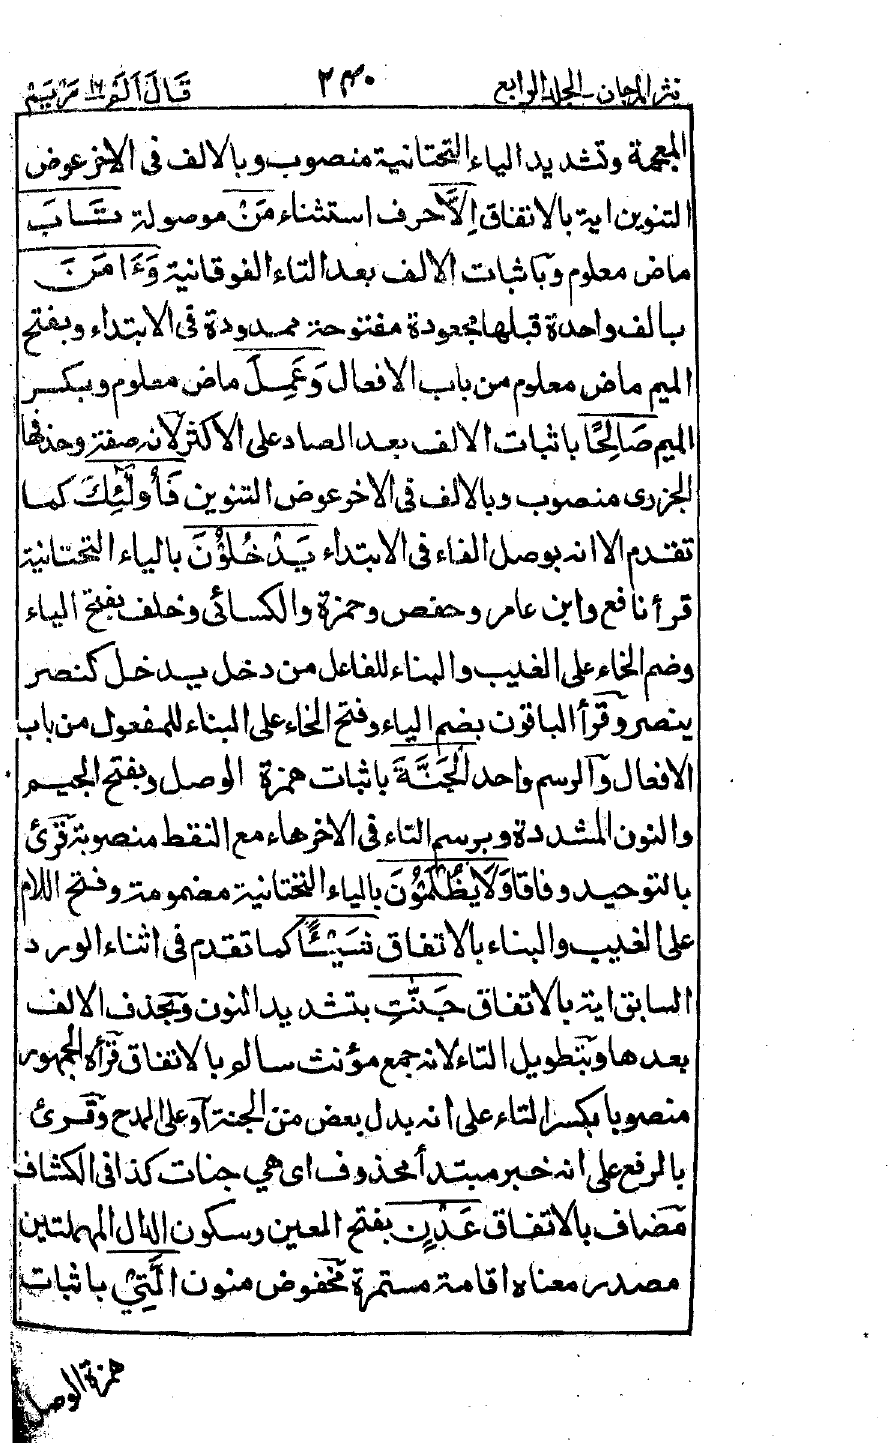 نثر المرجان - الجلد الرابع ٢٤٠ قَالَ اَلَمْ ١٦ مَرْيَمْ
المعجمة وتشديد الياء التحتانية منصوب وبالالف فى الاخر عوض
التنوين اية بالاتفاق اِلَّا حرف استثناء مَنْ موصولة تَابَ
ماض معلوم وباثبات الالف بعد التاء الفوقانية وَءَامَنَ
بالف واحدة قبلها مجعودة مفتوحة ممدودة فى الابتداء وبفتح
الميم ماض معلوم من باب الافعال وَعَمِلَ ماض معلوم وبكسر
الميم صَالِحًا باثبات الالف بعد الصاد على الاكثر لانه صفة وحذفها
الجزرى منصوب وبالالف فى الاخر عوض التنوين فَأُولَٰئِكَ كما
تقدم الا انه بوصل الفاء فى الابتداء يَدْخُلُوْنَ بالياء التحتانية
قرأ نافع وابن عامر وحفص وحمزة والكسائى وخلف بفتح الياء
وضم الخاء على الغيب والبناء للفاعل من دخل يدخل كنصر
ينصر وقرأ الباقون بضم الياء وفتح الخاء على البناء للمفعول من باب
الافعال والرسم واحد الْجَنَّةَ باثبات همزة الوصل وبفتح الجيم
والنون المشددة وبرسم التاء فى الاخر هاء مع النقط منصوبة قرئ
بالتوحيد وفاقا وَلَا يُظْلَمُوْنَ بالياء التحتانية مضمومة وفتح اللام
على الغيب والبناء بالاتفاق شَيْـًٔا كما تقدم فى اثناء الورد
السابق اية بالاتفاق جَنّٰتِ بتشديد النون وبحذف الالف
بعدها وبتطويل التاء لانه جمع مؤنث سالم بالاتفاق قرأه الجمهور
منصوبا بكسر التاء على انه بدل بعض من الجنة او على المدح وقرئ
بالرفع على انه خبر مبتدأ محذوف اى هي جنات كذا فى الكشاف
مضاف بالاتفاق عَدْنٍ بفتح العين وسكون الدال المهملتين
مصدر معناه اقامة مستمرة مخفوض منون الَّتِيْ باثبات
همزة الوصل